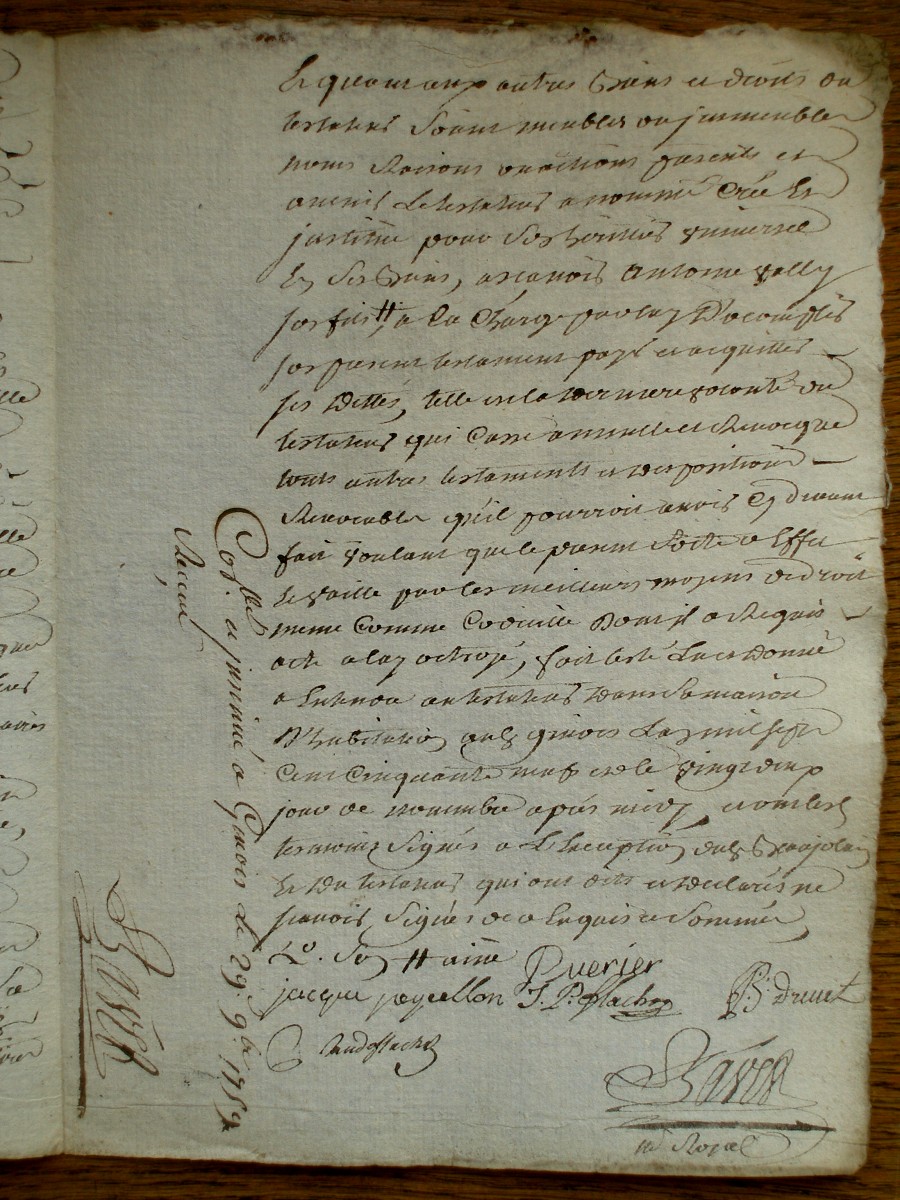 Et quant aux autres biens et droits du
testateur soient meubles ou jmmeubles
noms Raisons ou actions presents et
avenir Le testateur a nommé Créé Et
jnstitué pour Ses héritier universel
En Ses biens, a scavoir Antoine Vally
son fils # a La Charge par luy D'accomplir
son present testament payer et acquitter
ses dettes, telle est la derniere volonté du
testateur qui Casse annulle et Revocque
touts autres testaments et dispositions
Revocables qu'il pourroit avoir Cy devant
fait voulant que le present Sorte a Effet
Et vaille par les meilleurs moyens de droit
meme Comme Codicille Dont il a Requis
acte a luy octroyé, fait leu Et donné
a Entendre au testateur dans Sa maison
D'habitation L'an mil sept
Cent Cinquante neuf et le vingt deux
jour de novembre après midy, et ont les
temoins Signés a L'Exception dud Beaujolain
Et Du testateur qui ont dits et declarés ne
scavoir Signer de ce Enquis et Sommés
# ainé
Querier
jacque peycellon J. P. flachon P. Druet
C flachon
Raver
n^re Royal
Coll^né et jnsinué a 29^e 9^bre 1759
Raver